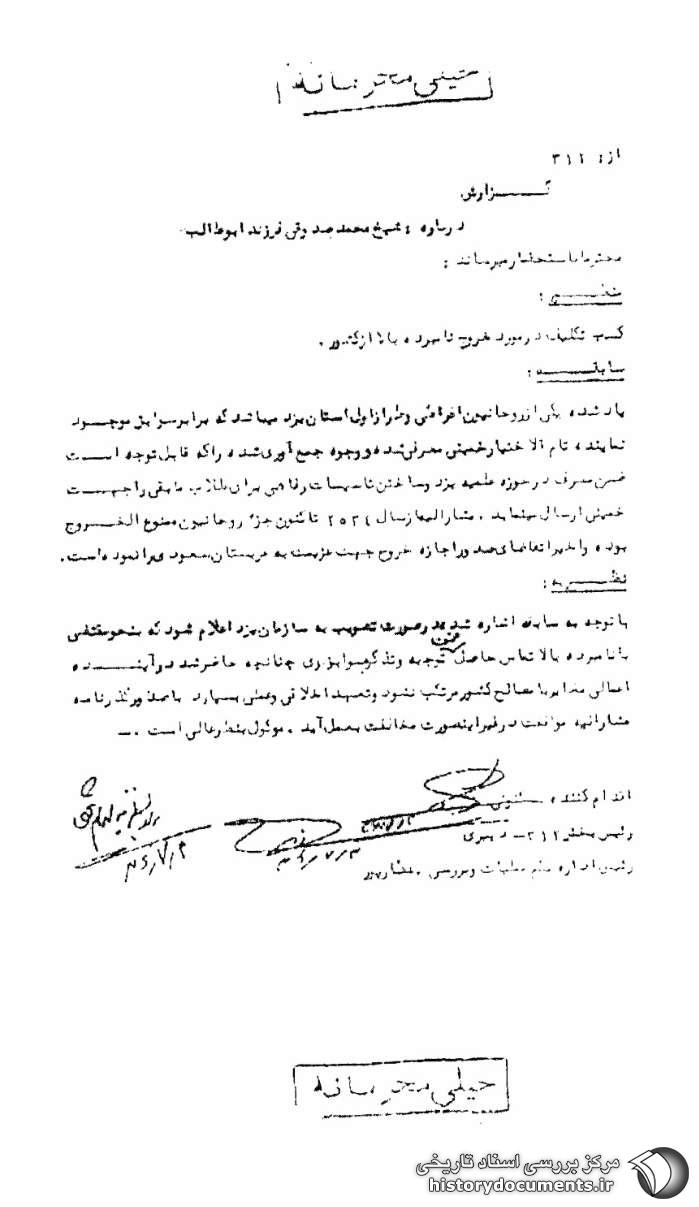 خیلی محرمانه
از : ۳۱۲
گزارش
درباره : شیخ محمد صدوقی فرزند ابوطالب
محترما باستحضار میرساند :
منظور :
کسب تکلیف در مورد خروج نامبرده بالا از کشور .
سابقه :
یاد شده یکی از روحانیون افراطی و طراز اول استان یزد میباشد که برابر سوابق موجود
نماینده تام الاختیار خمینی معرفی شده و وجوه جمع آوری شده را که قابل توجه است
ضمن مصرف در حوزه علمیه یزد و ساختن تاسیسات رفاهی برای طلاب مابقی را جهت
خمینی ارسال مینماید . مشارالیه از سال ۲۵۳۴ تاکنون جزء روحانیون ممنوع الخروج
بوده و اخیرا تقاضای صدور اجازه خروج جهت عزیمت به عربستان سعودی را نموده است .
نظریه :
با توجه به سابقه اشاره شده در صورت تصویب به سازمان یزد اعلام شود که بنحو مقتضی
با نامبرده بالا تماس حاصل ضمن توجیه و تذکر چنانچه حاضر شد در آینده
اعمالی مغایر با مصالح کشور مرتکب نشود و تعهد اخلاقی و عملی بسپارد با صدور گذرنامه
مشارالیه موافقت در غیر اینصورت مخالفت بعمل آید . موکول بنظر عالی است . ــ
اقدام کننده
رئیس بخش ۳۱۲ ــ
رئیس اداره یکم عملیات و بررسی .
خیلی محرمانه
مرکز بررسی اسناد تاریخی
historydocuments.ir